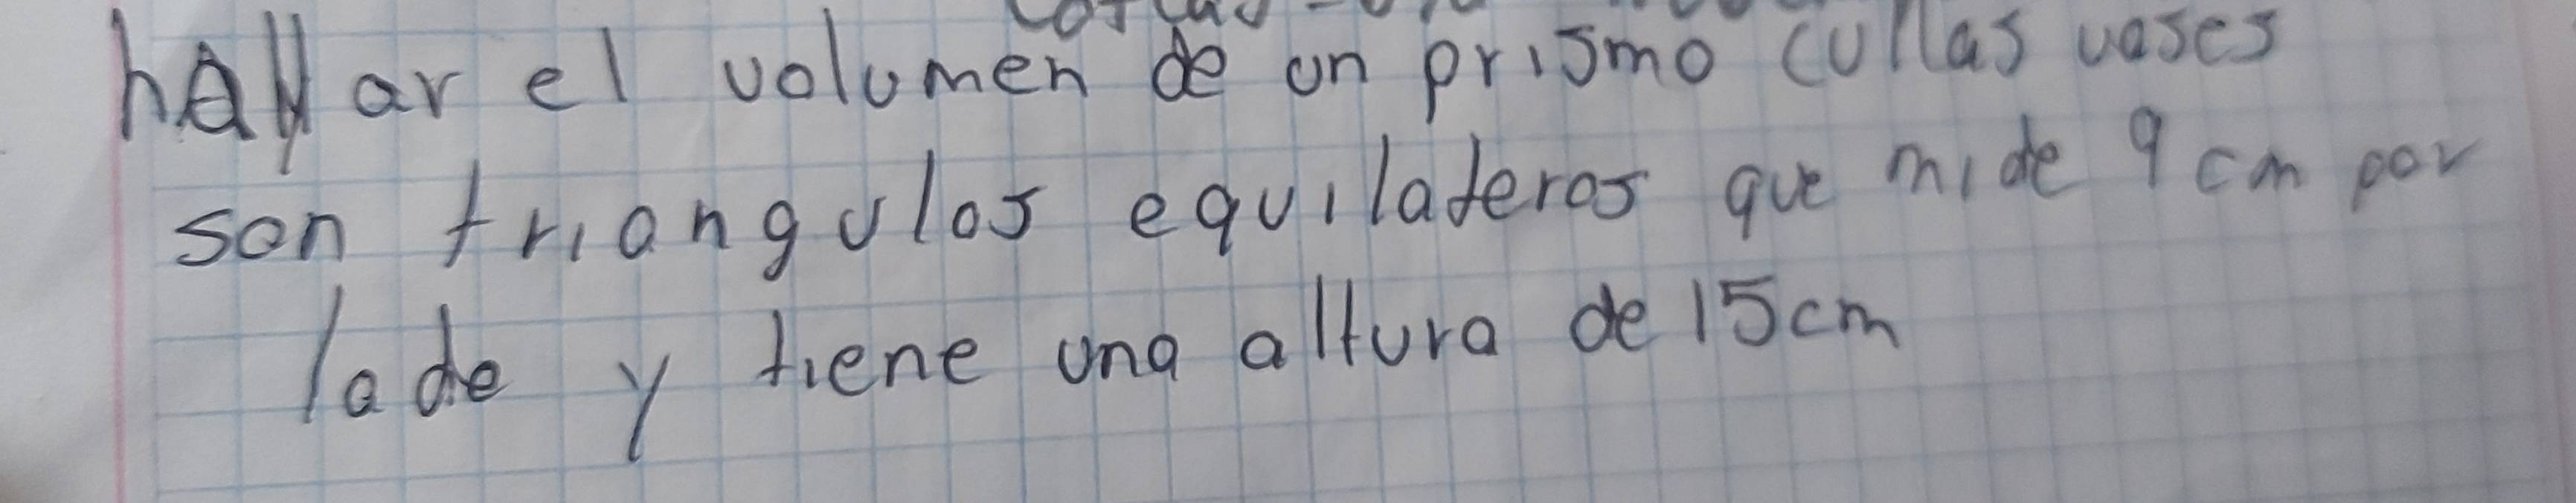 hallar el volumen de un prismo cullas vases
son triangulos equilateros que mide 9 cm por
lado y tiene una altura de 15cm